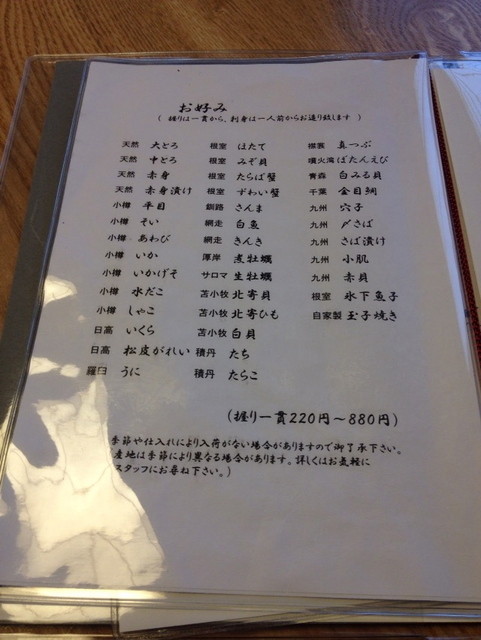 お好み
( 握りは一貫から、刺身は一人前からお造り致します )
天然 大とろ 根室 ほたて 襟裳 真つぶ
天然 中とろ 根室 みぞ貝 噴火湾 ぼたんえび
天然 赤身 根室 たらば蟹 青森 白みる貝
天然 赤身漬け 根室 ずわい蟹 千葉 金目鯛
小樽 平目 釧路 さんま 九州 穴子
小樽 そい 網走 白魚 九州 〆さば
小樽 あわび 網走 きんき 九州 さば漬け
小樽 いか 厚岸 煮牡蠣 九州 小肌
小樽 いかげそ サロマ 生牡蠣 九州 赤貝
小樽 水だこ 苫小牧 北寄貝 根室 氷下魚子
小樽 しゃこ 苫小牧 北寄ひも 自家製 玉子焼き
日高 いくら 苫小牧 白貝
日高 松皮がれい 積丹 たち
羅臼 うに 積丹 たらこ
(握り一貫220円〜880円)
季節や仕入れにより入荷がない場合がありますので御了承下さい。
産地は季節により異なる場合があります。詳しくはお気軽に
スタッフにお尋ね下さい。)